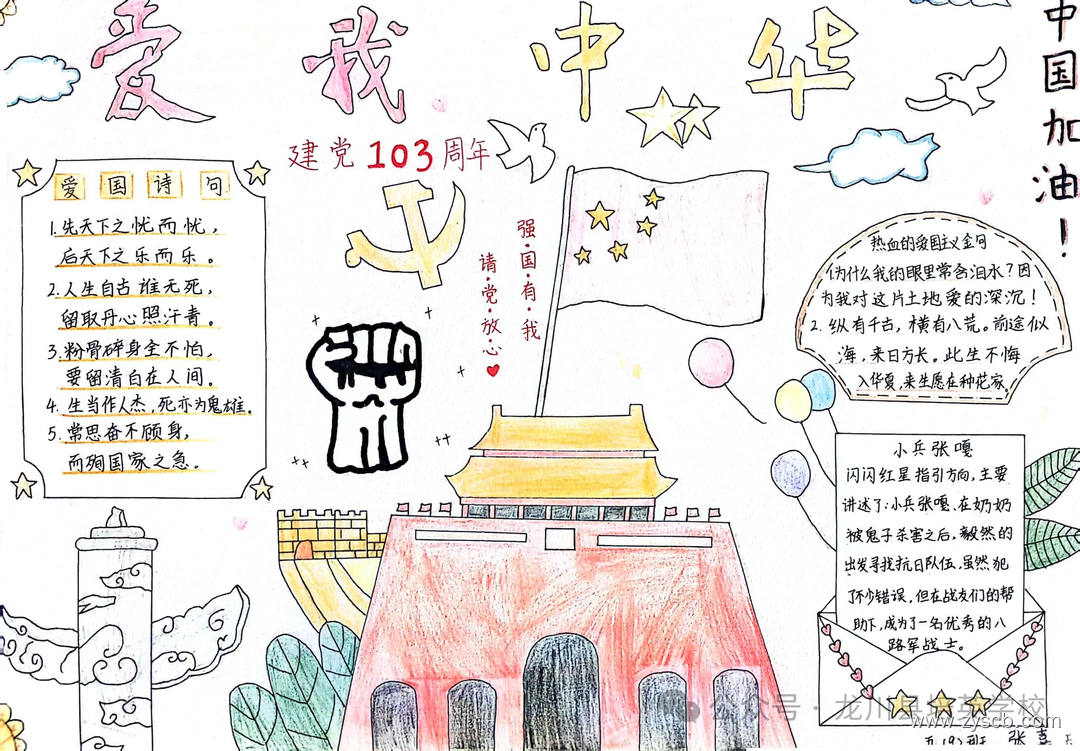 爱我中华
中国加油！
建党103周年
强·国·有·我
请·党·放·心
爱国诗句
1.先天下之忧而忧，
后天下之乐而乐。
2.人生自古谁无死，
留取丹心照汗青。
3.粉骨碎身全不怕，
要留清白在人间。
4.生当作人杰，死亦为鬼雄。
5.常思奋不顾身，
而殉国家之急。
热血的爱国主义金句
为什么我的眼里常含泪水？因
为我对这片土地爱的深沉！
2.纵有千古，横有八荒。前途似
海，来日方长。此生不悔
入华夏，来生愿在种花家。
小兵张嘎
闪闪红星指引方向，主要
讲述了：小兵张嘎、在奶奶
被鬼子杀害之后，毅然的
出发寻找抗日队伍，虽然犯
了不少错误，但在战友们的帮
助下，成为了一名优秀的八
路军战士。
公众号·龙川县
学校
www.zyscb.com
班 张